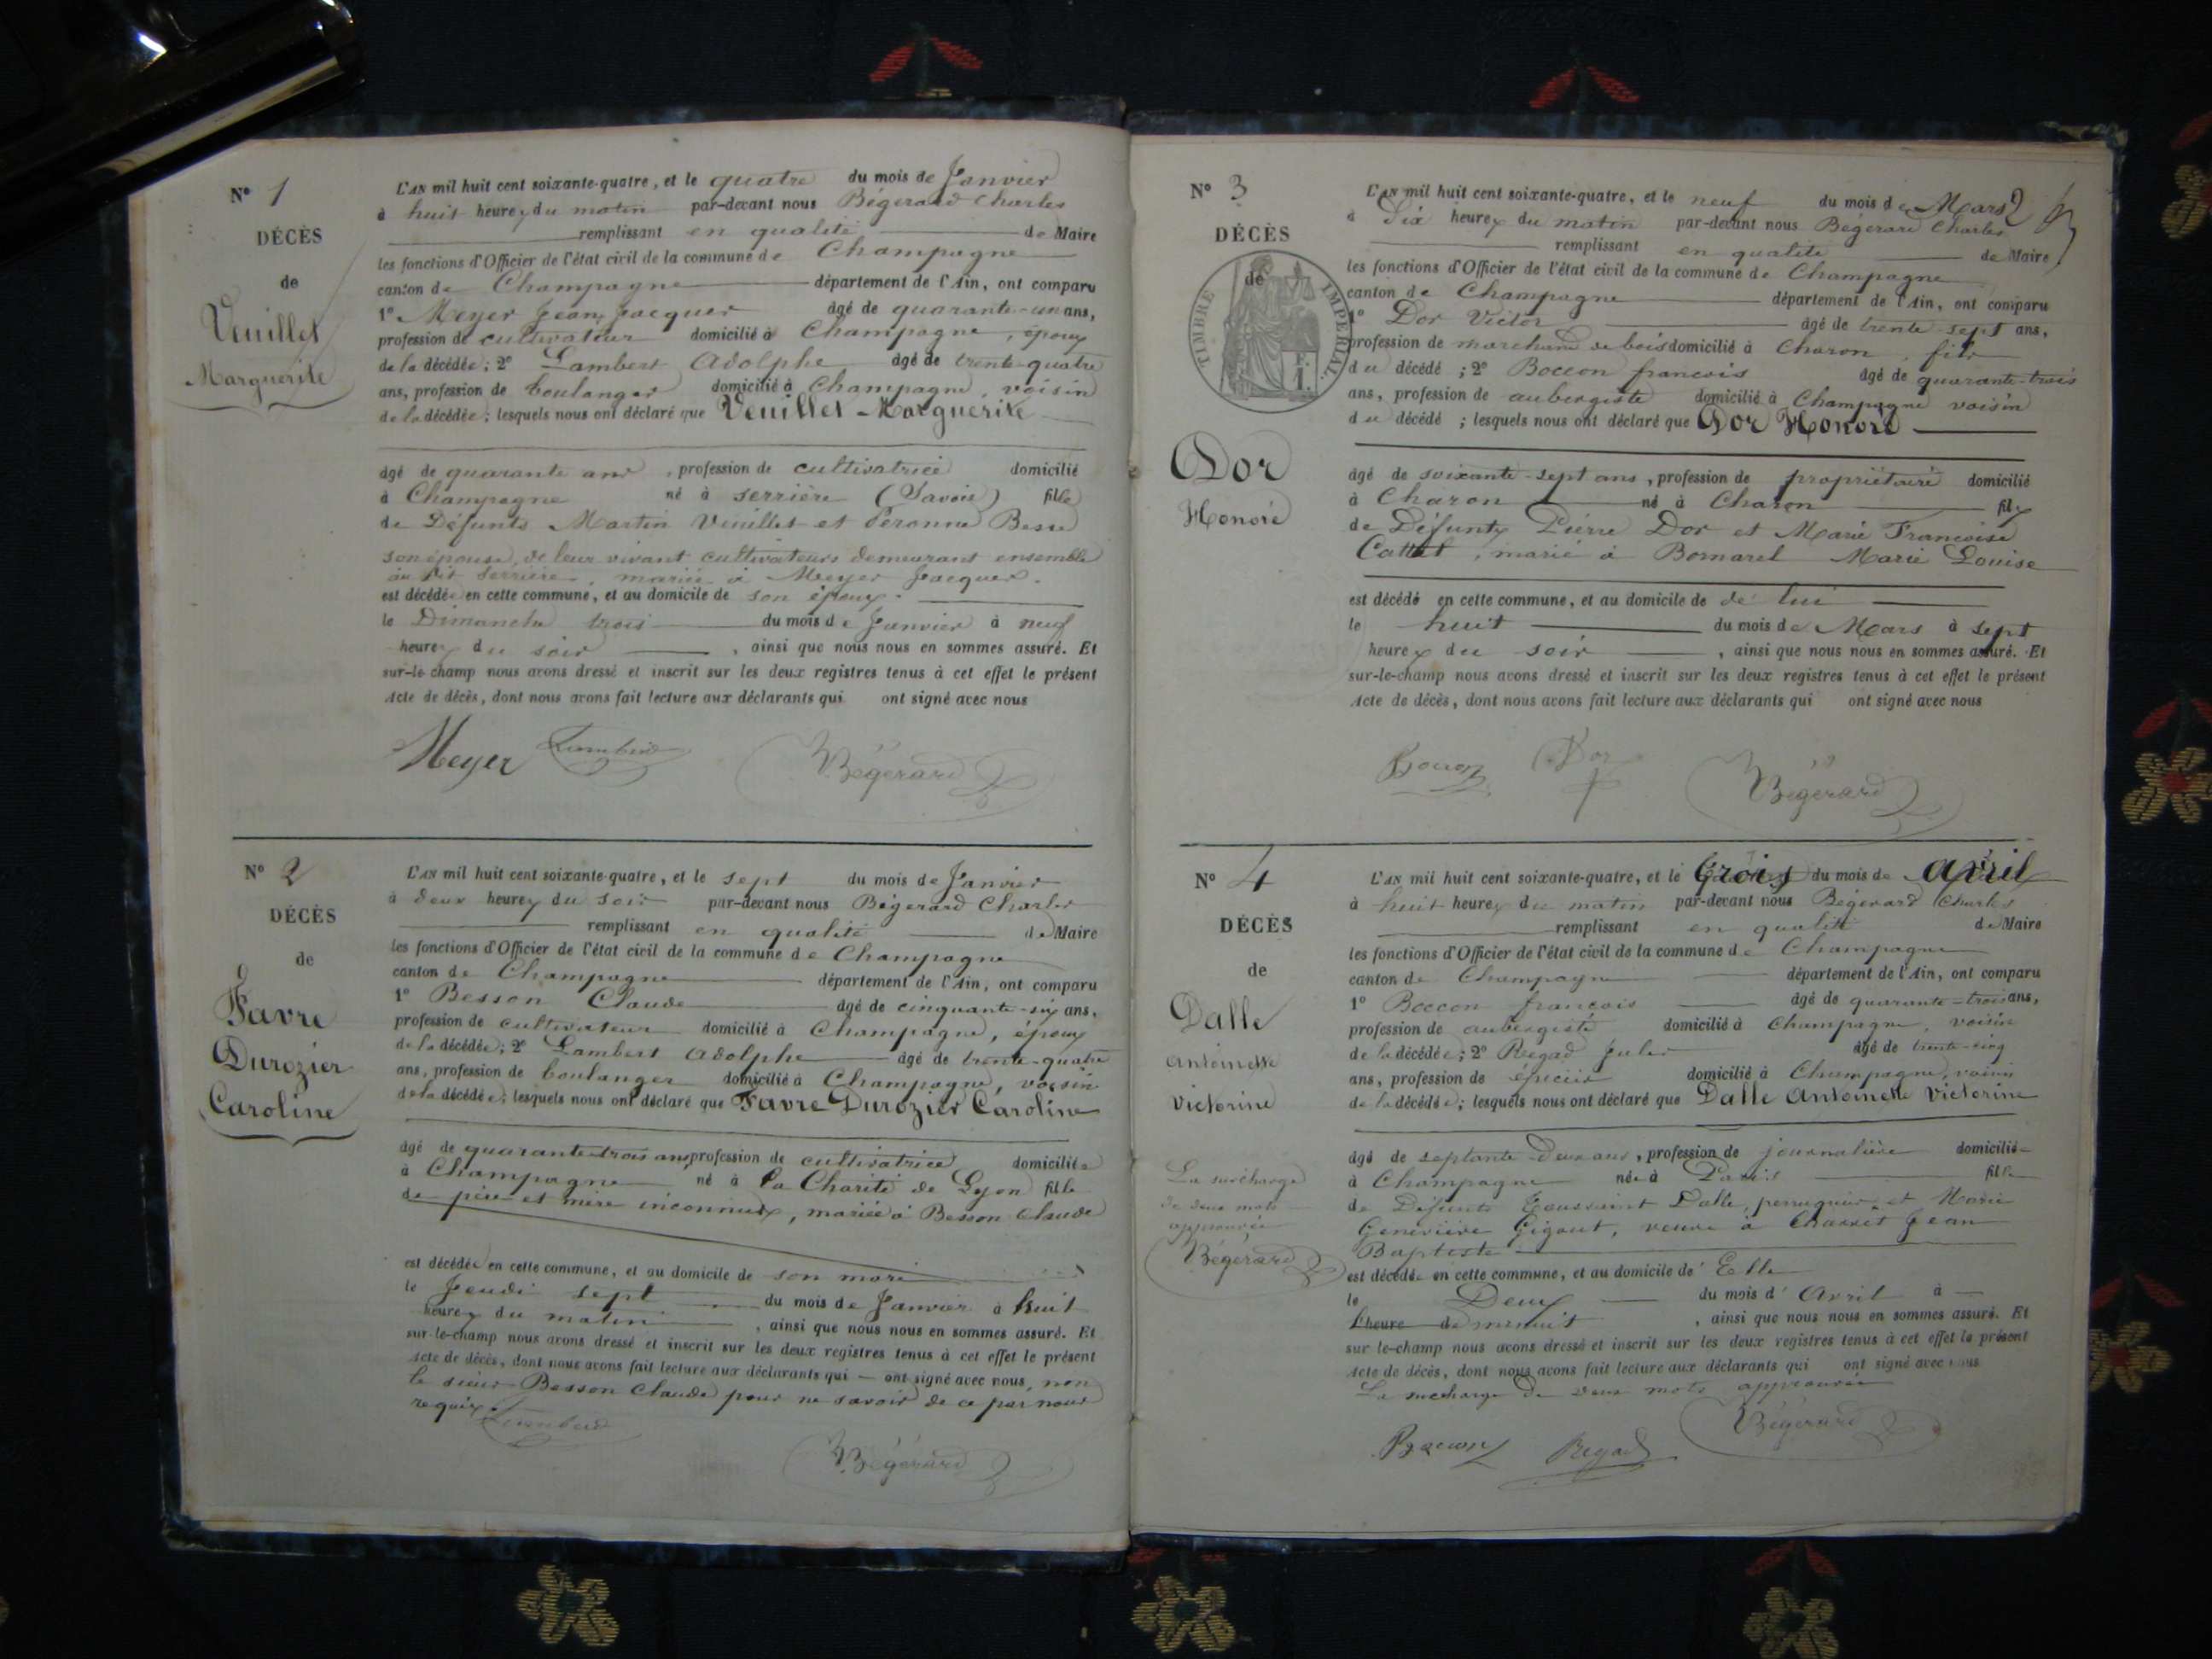 Nº 1
DÉCÈS
de
Veuillet
Marguerite
L'AN mil huit cent soixante-quatre, et le quatre du mois de Janvier
à huit heures du matin par-devant nous Bégerard Charles
remplissant en qualité de Maire
les fonctions d'Officier de l'état civil de la commune de Champagne
canton de Champagne département de l'Ain, ont comparu
1º Meyer Jean Jacques âgé de quarante-un ans,
profession de cultivateur domicilié à Champagne, époux
de la décédée; 2º Lambert Adolphe âgé de trente-quatre
ans, profession de boulanger domicilié à Champagne, voisin
de la décédée; lesquels nous ont déclaré que Veuillet Marguerite
âgé de quarante ans, profession de cultivatrice domicilié
à Champagne né à Serrière (Savoie) fille
de Défunts Martin Veuillet et Péronne Besse
son épouse, de leur vivant cultivateurs demeurant ensemble
au dit Serrière, mariée à Meyer Jacques.
est décédée en cette commune, et au domicile de son époux.
le Dimanche trois du mois de Janvier à neuf
heures du soir, ainsi que nous nous en sommes assuré. Et
sur-le-champ nous avons dressé et inscrit sur les deux registres tenus à cet effet le présent
Acte de décès, dont nous avons fait lecture aux déclarants qui ont signé avec nous
Meyer Lambert Bégerard
Nº 2
DÉCÈS
de
Favre
Durozier
Caroline
L'AN mil huit cent soixante-quatre, et le sept du mois de Janvier
à deux heures du soir par-devant nous Bégerard Charles
remplissant en qualité de Maire
les fonctions d'Officier de l'état civil de la commune de Champagne
canton de Champagne département de l'Ain, ont comparu
1º Besson Claude âgé de cinquante-six ans,
profession de cultivateur domicilié à Champagne, époux
de la décédée; 2º Lambert Adolphe âgé de trente-quatre
ans, profession de boulanger domicilié à Champagne, voisin
de la décédée; lesquels nous ont déclaré que Favre Durozier Caroline
âgé de quarante-trois ans profession de cultivatrice domiciliée
à Champagne né à La Charité de Lyon fille
de père et mère inconnus, mariée à Besson Claude
est décédée en cette commune, et au domicile de son mari
le Jeudi sept du mois de Janvier à huit
heures du matin, ainsi que nous nous en sommes assuré. Et
sur-le-champ nous avons dressé et inscrit sur les deux registres tenus à cet effet le présent
Acte de décès, dont nous avons fait lecture aux déclarants qui — ont signé avec nous, non
le sieur Besson Claude pour ne savoir de ce par nous
requis. Lambert
Bégerard
Nº 3
DÉCÈS
de
TIMBRE IMPÉRIAL
F.
1.
Dor
Honoré
L'AN mil huit cent soixante-quatre, et le neuf du mois de Mars 2
à dix heures du matin par-devant nous Bégerard Charles
remplissant en qualité de Maire
les fonctions d'Officier de l'état civil de la commune de Champagne
canton de Champagne département de l'Ain, ont comparu
1º Dor Victor âgé de trente-sept ans,
profession de marchand de bois domicilié à Charon, fils
du décédé; 2º Boccon françois âgé de quarante-trois
ans, profession de aubergiste domicilié à Champagne voisin
du décédé; lesquels nous ont déclaré que Dor Honoré
âgé de soixante-sept ans, profession de propriétaire domicilié
à Charon né à Charon fils
de Défunts Pierre Dor et Marie Françoise
Cattet, marié à Bornarel Marie Louise
est décédé en cette commune, et au domicile de de lui
le huit du mois de Mars à sept
heures du soir, ainsi que nous nous en sommes assuré. Et
sur-le-champ nous avons dressé et inscrit sur les deux registres tenus à cet effet le présent
Acte de décès, dont nous avons fait lecture aux déclarants qui ont signé avec nous
Boccon Dor Bégerard
Nº 4
DÉCÈS
de
Dalle
Antoinette
Victorine
La surcharge
de deux mots
approuvée
Bégerard
L'AN mil huit cent soixante-quatre, et le trois du mois de avril
à huit heures du matin par-devant nous Bégerard Charles
remplissant en qualité de Maire
les fonctions d'Officier de l'état civil de la commune de Champagne
canton de Champagne département de l'Ain, ont comparu
1º Boccon françois âgé de quarante-trois ans,
profession de aubergiste domicilié à Champagne, voisin
de la décédée; 2º Regad Jules âgé de trente-cinq
ans, profession de épicier domicilié à Champagne, voisin
de la décédée; lesquels nous ont déclaré que Dalle Antoinette Victorine
âgé de septante-deux ans, profession de journalière domicilié
à Champagne née à Paris fille
de Défunts Toussaint Dalle, perruquier et Marie
Geneviève Gigout, veuve à Charret Jean
Baptiste
est décédée en cette commune, et au domicile de Elle
le Deux du mois d'Avril à
heure de minuit, ainsi que nous nous en sommes assuré. Et
sur-le-champ nous avons dressé et inscrit sur les deux registres tenus à cet effet le présent
Acte de décès, dont nous avons fait lecture aux déclarants qui ont signé avec nous
La surcharge de deux mots approuvée
Boccon Regad Bégerard